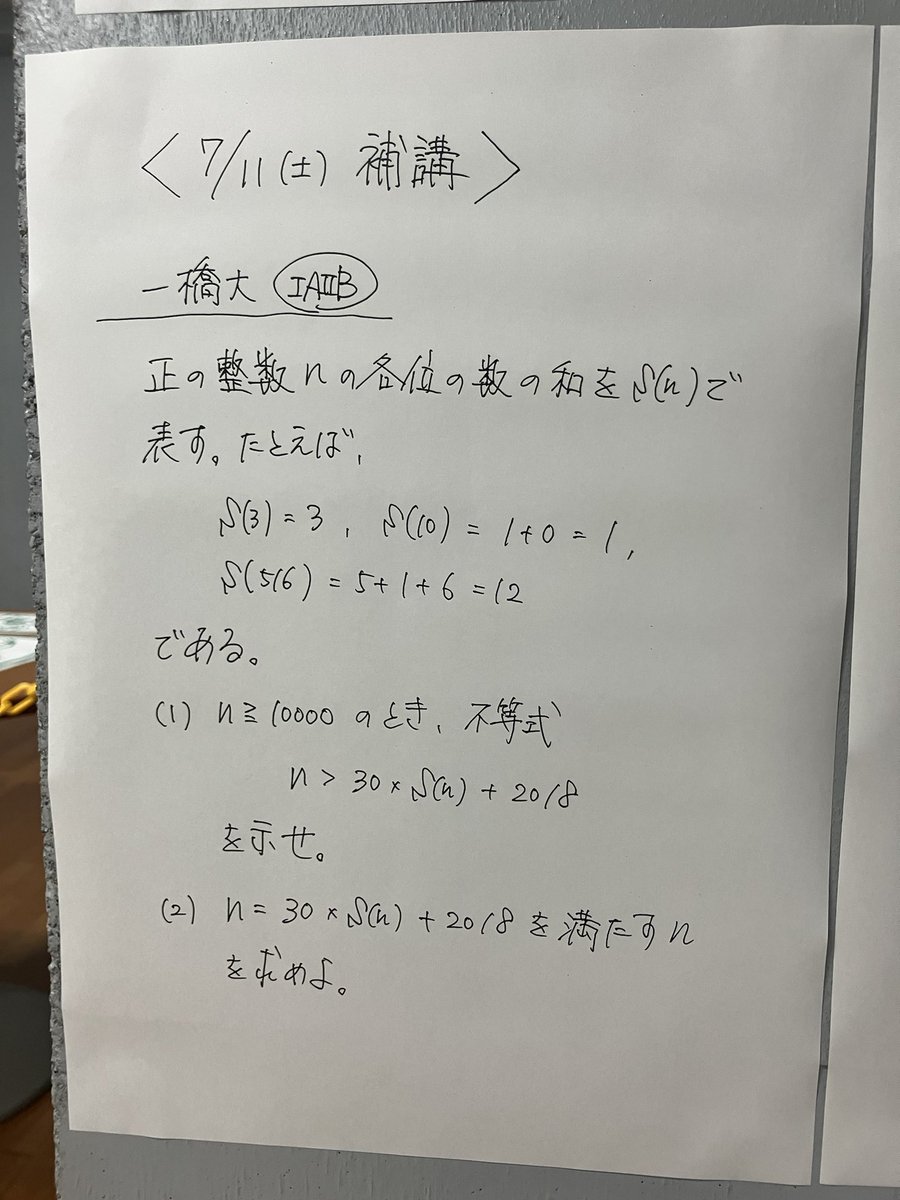 〈7/11(土) 補講〉
一橋大 IAIIB
正の整数nの各位の数の和をS(n)で
表す。たとえば、
S(3)=3, S(10)=1+0=1,
S(516)=5+1+6=12
である。
(1) n≧10000のとき、不等式
n>30×S(n)+2018
を示せ。
(2) n=30×S(n)+2018を満たすn
を求めよ。